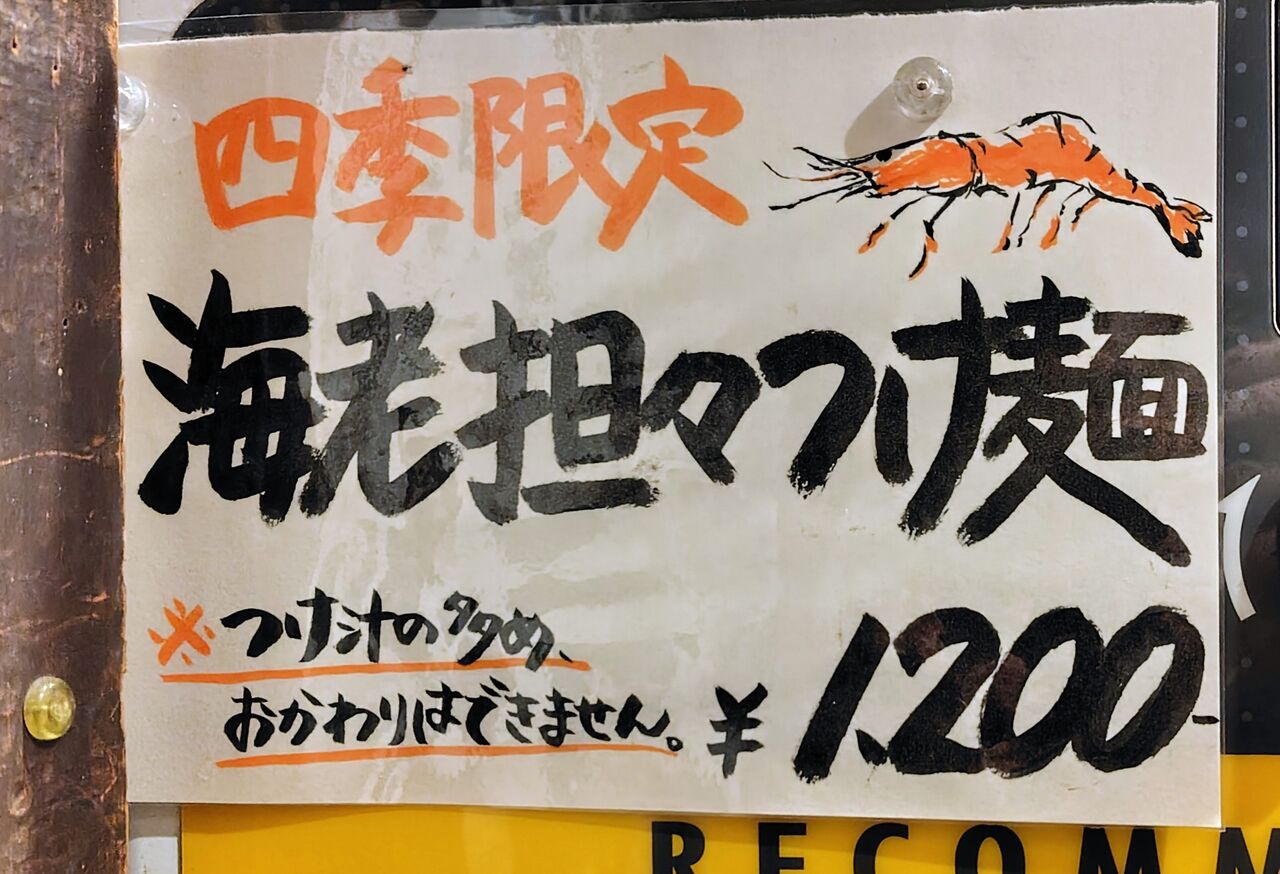 四季限定
海老担々つけ麺
※つけ汁の多め、
おかわりはできません。
¥1,200-
RECOMM